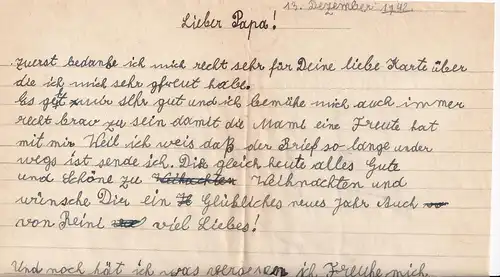 13. Dezember 1942
Lieber Papa!
zuerst bedanke ich mich recht sehr für Deine liebe Karte über
die ich mich sehr gfreut habe.
Es geht mir sehr gut und ich bemühe mich auch immer
recht brav zu sein damit die Mami eine Freute hat
mit mir. Weil ich weis daß der Brief so lange under
wegs ist sende ich. Dir gleich heute alles Gute
und Schöne zu Weihnachten und
wünsche Dier ein Glükliches neues Jahr Auch
von Reinl viel Liebes!
Und noch hät ich was vergesen ich Freuhe mich